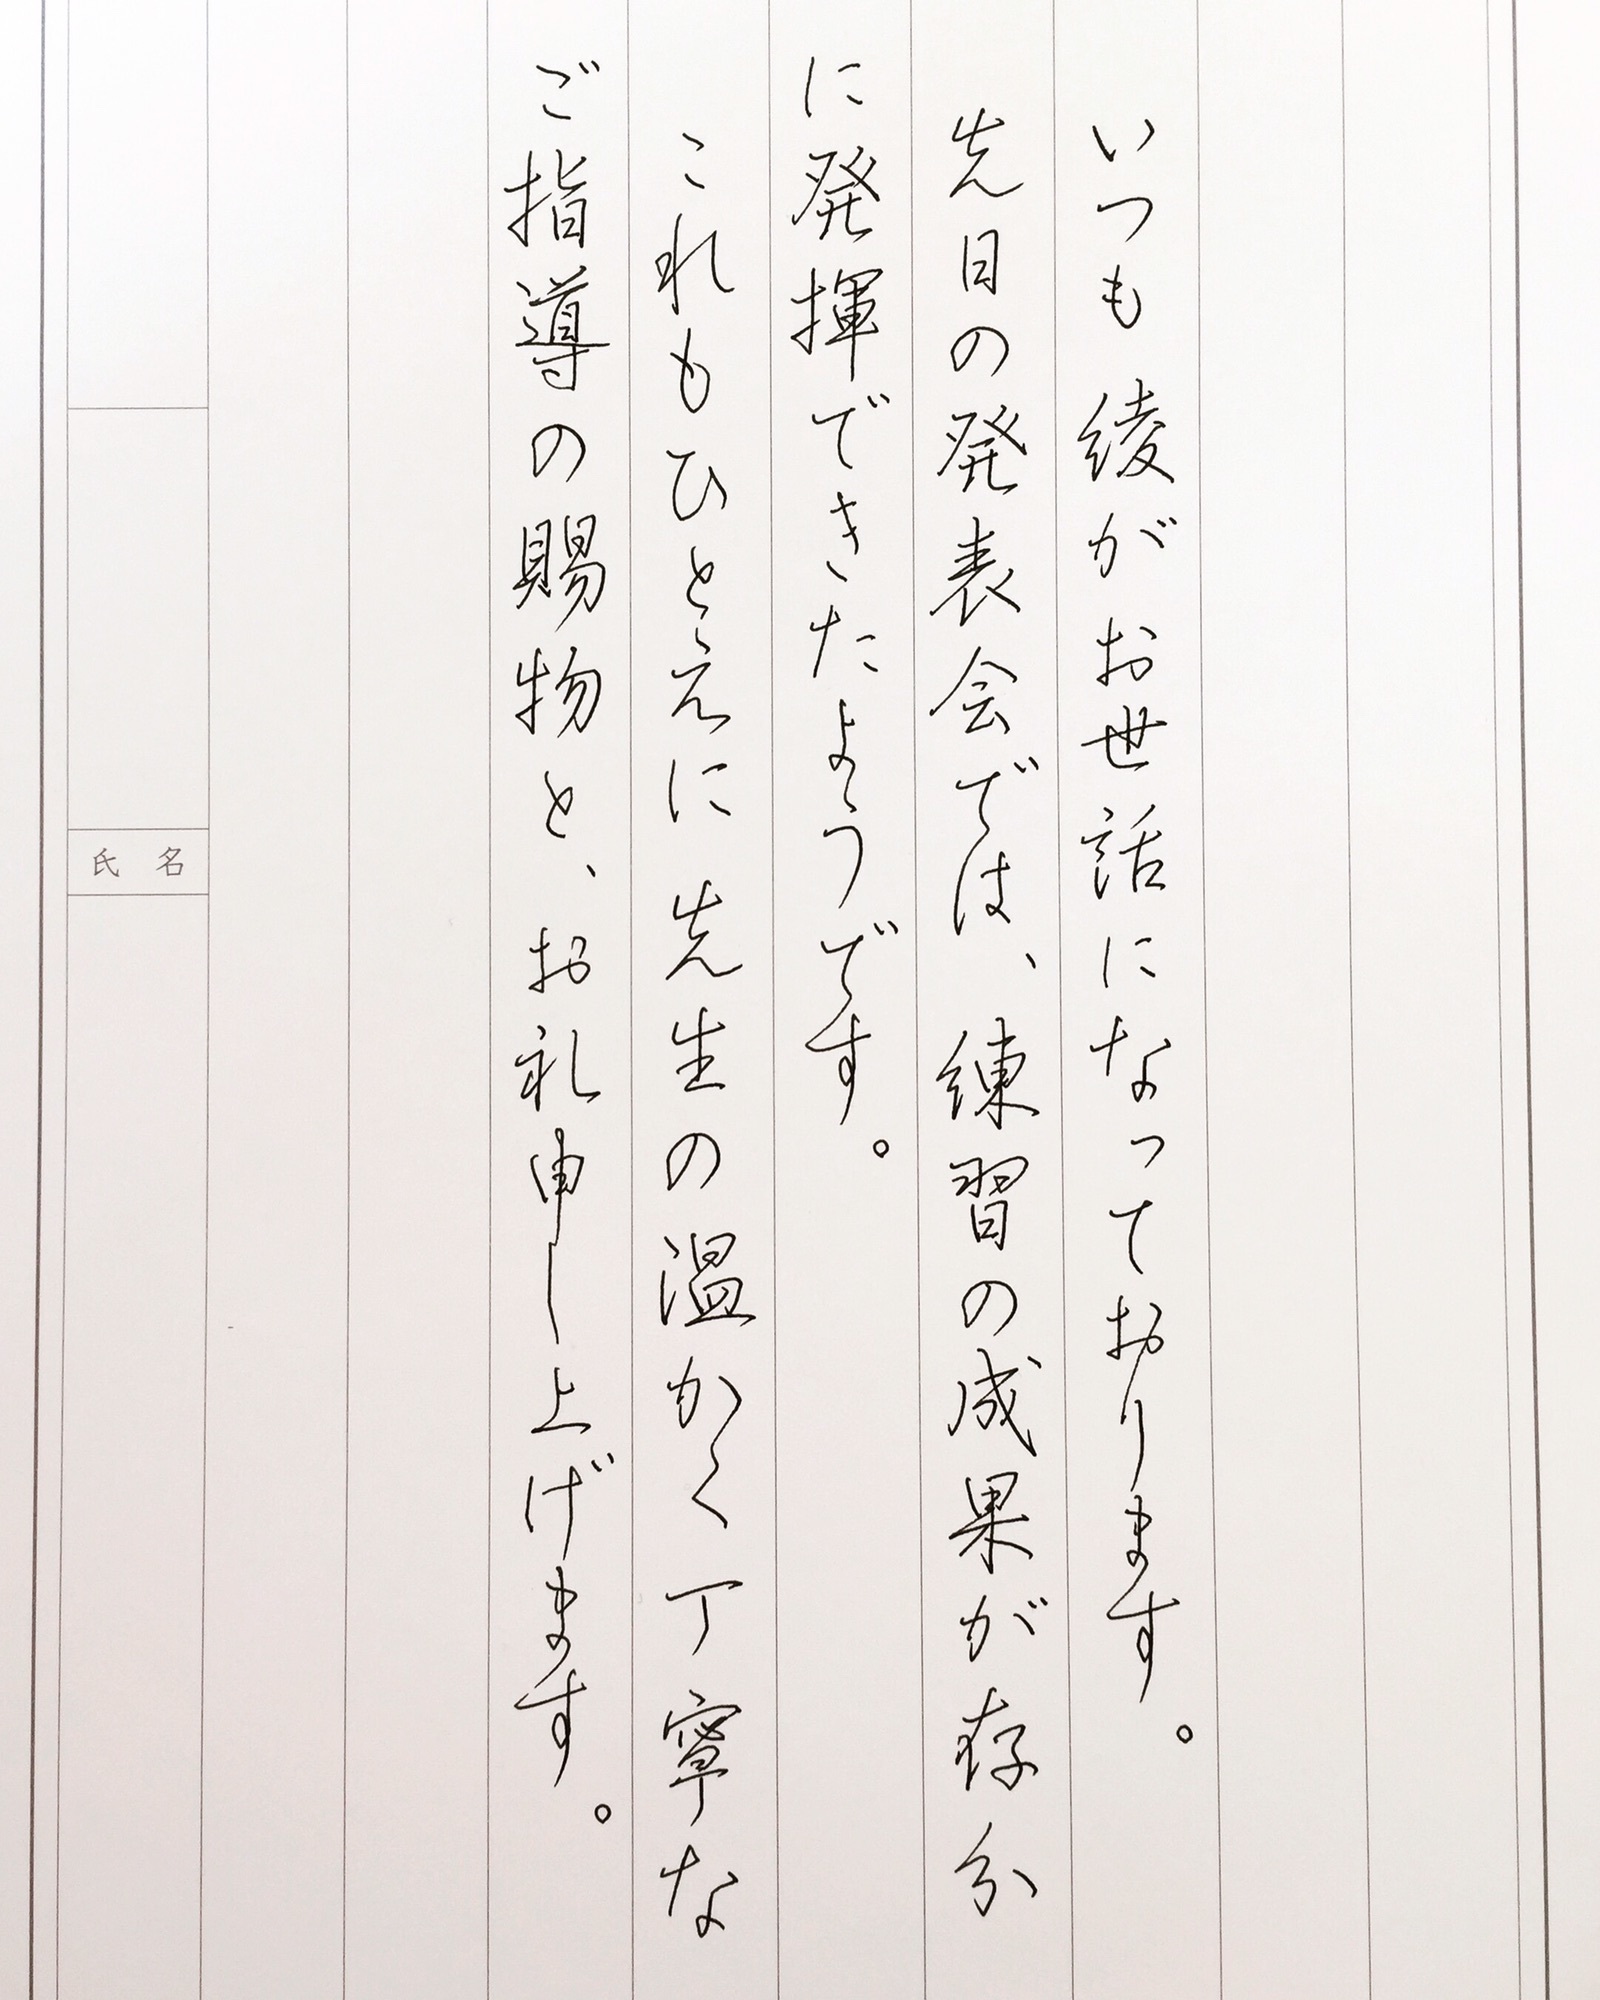 いつも綾がお世話になっております。
先日の発表会では、練習の成果が存分
に発揮できたようです。
これもひとえに先生の温かく丁寧な
ご指導の賜物と、お礼申し上げます。
氏名